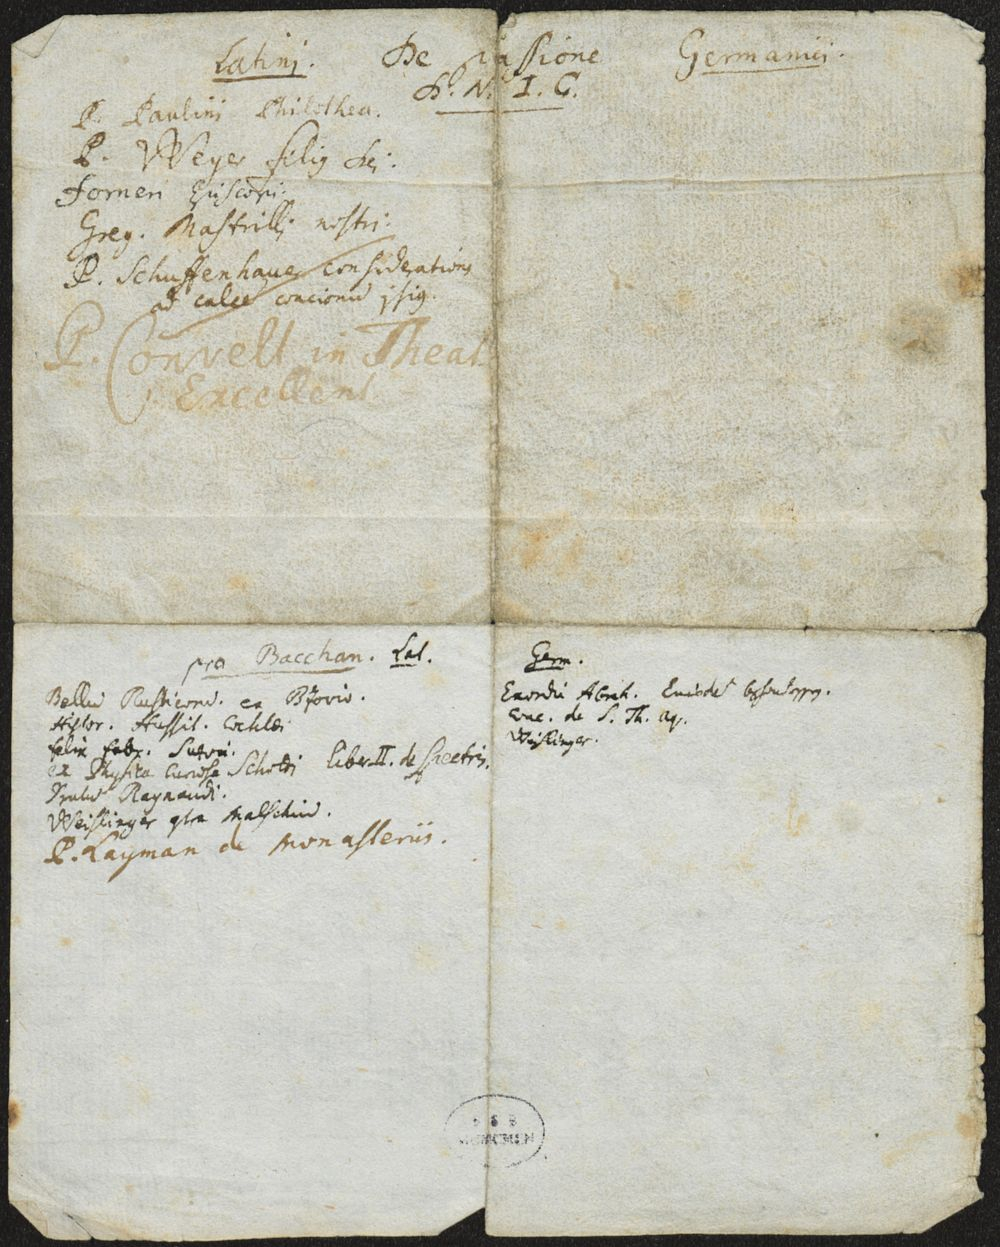 Latini. De passione Germanici.
D. N. I. C.
P. Paulini Philothea.
P. Weyer filig Dei.
Forneri Episcopi.
Greg. Mastrilli nostri.
P. Schuffenhauer considerations
ad calce concionu
P. Convelt in Theat.
Excellent
pro Bacchan. Lat.
Bellu Rusticoru. ex Bzovio.
Histor. Hussit. Cochlei
Felix Fabr.
ex Physica Curiosa Schotti liber II. de Spectris.
Raynaudi.
Weislinger
P. Layman de Monasteriis.
Germ.
Exordiu Abrah.
conc. de S. Th. Aq.
Weislinger.
MÜNCHEN